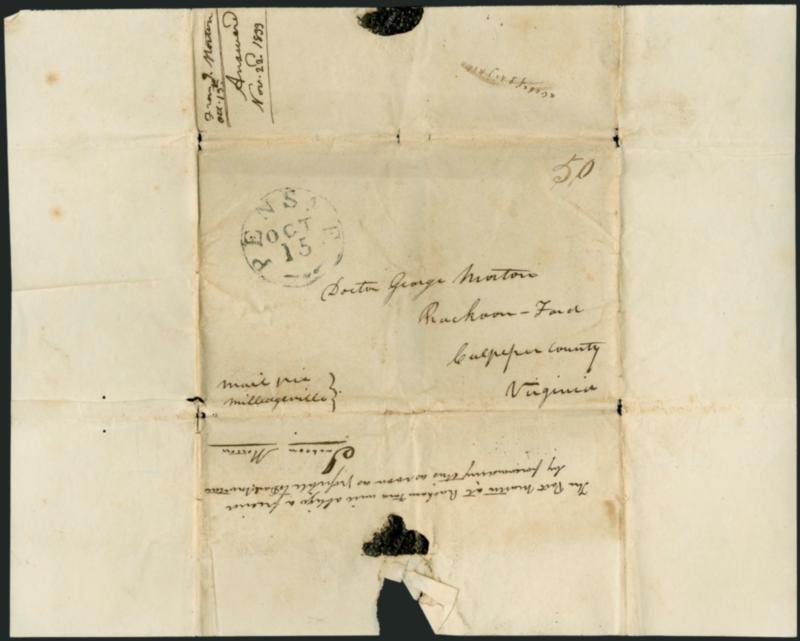 From J. Morton
Oct. 15
Answered
Nov. 22. 1833
50
PENS
OCT
15
Doctor George Morton
Rackoon-Ford
Culpeper County
Virginia
Mail via
Milledgeville
Jackson
Morton
The Post Master at Rackoon Ford will oblige a friend
by forwarding this as soon as possible to